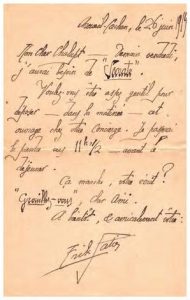 Arcueil-Cachan, le 26 juin 1919
Mon Cher Chalupt – Demain vendredi,
j'aurai besoin de "Socrate"
Voulez-vous être assez gentil pour
déposer – dans la matinée – cet
ouvrage chez votre Concierge. Je passerai
le prendre vers 11h 1/2 – avant le
déjeuner.
Ça marche, votre
"Grouillez-vous", cher Ami.
A bientôt, & amicalement vôtre :
Erik Satie